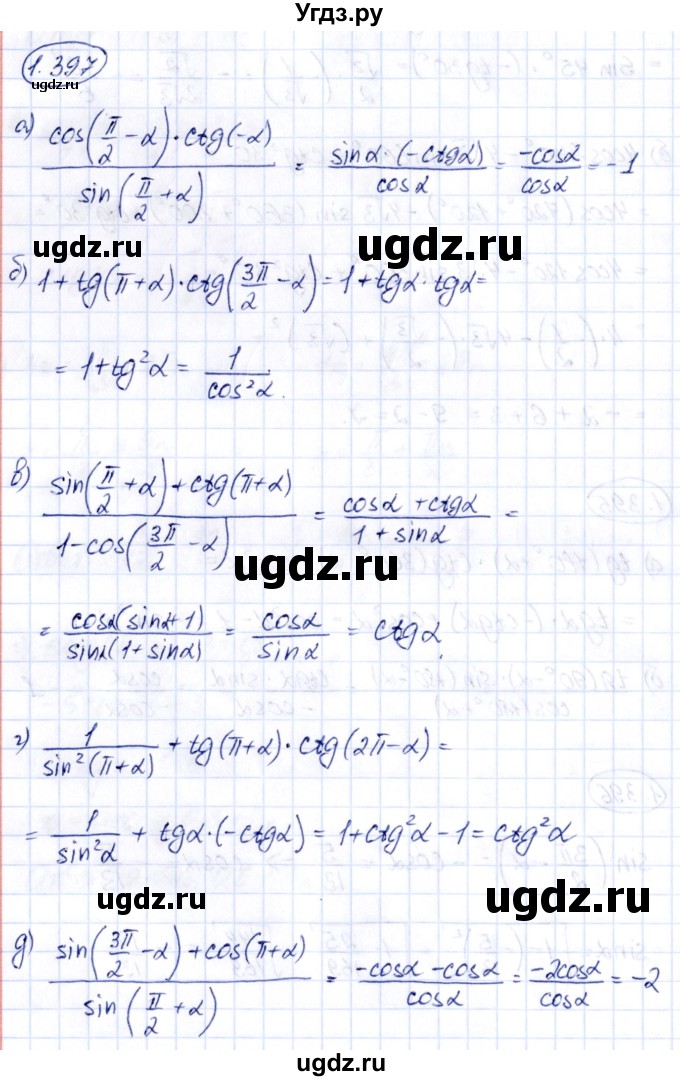 Угдз.ру
1.397
а) cos(π/2 − α) · ctg(−α) / sin(π/2 + α) = sinα · (−ctgα) / cosα = −cosα / cosα = −1
ugdz.ru
ugdz.ru
б) 1 + tg(π + α) · ctg(3π/2 − α) = 1 + tgα · tgα =
= 1 + tg²α = 1 / cos²α.
ugdz.ru
в) sin(π/2 + α) + ctg(π + α) / 1 − cos(3π/2 − α) = cosα + ctgα / 1 + sinα =
ugdz.ru
= cosα(sinα + 1) / sinα(1 + sinα) = cosα / sinα = ctgα.
г) 1 / sin²(π + α) + tg(π + α) · ctg(2π − α) =
= 1 / sin²α + tgα · (−ctgα) = 1 + ctg²α − 1 = ctg²α
ugdz.ru
ugdz.ru
д) sin(3π/2 − α) + cos(π + α) / sin(π/2 + α) = −cosα − cosα / cosα = −2cosα / cosα = −2
ugdz.ru